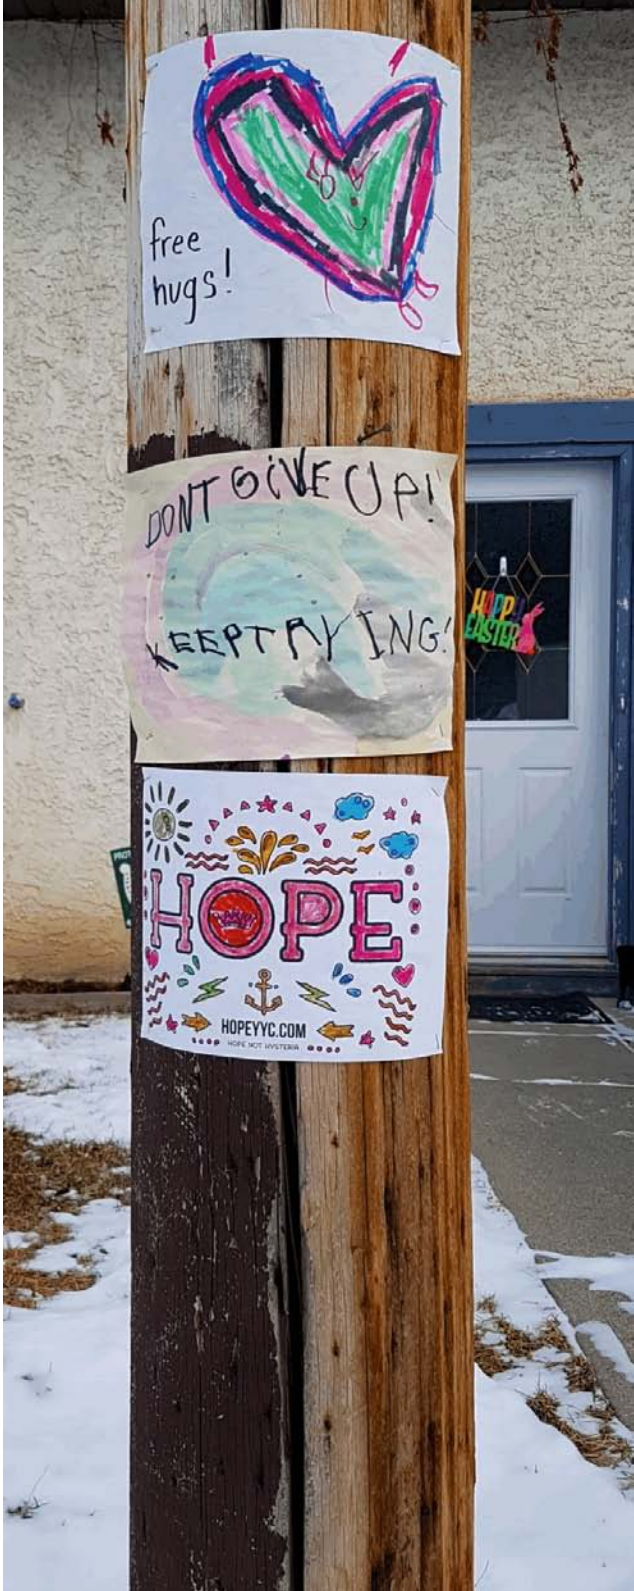 free
hugs!
DONT GiVE UP!
KEEPTRYING!
HAPPY
EASTER
HOPE
HOPEYYC.COM
HOPE NOT HYSTERIA